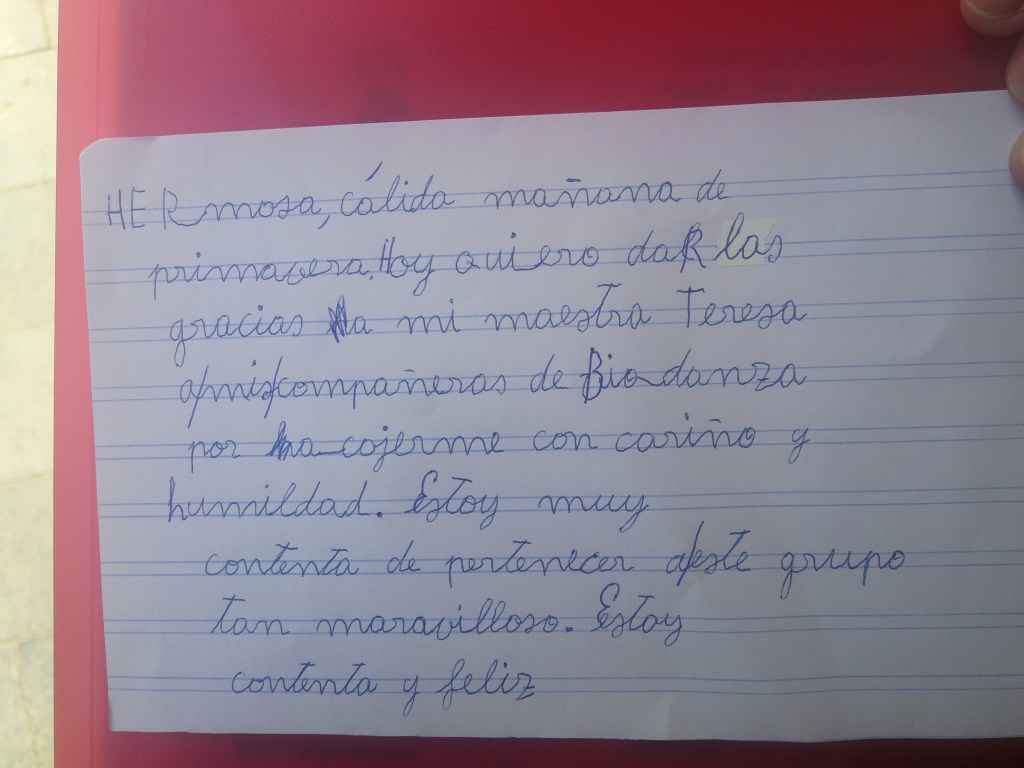 HERmosa, cálida mañana de
primavera. Hoy quiero daR las
gracias a mi maestra Teresa
a/mis/compañeras de Biodanza
por acojerme con cariño y
humildad. Estoy muy
contenta de pertenecer a/este grupo
tan maravilloso. Estoy
contenta y feliz